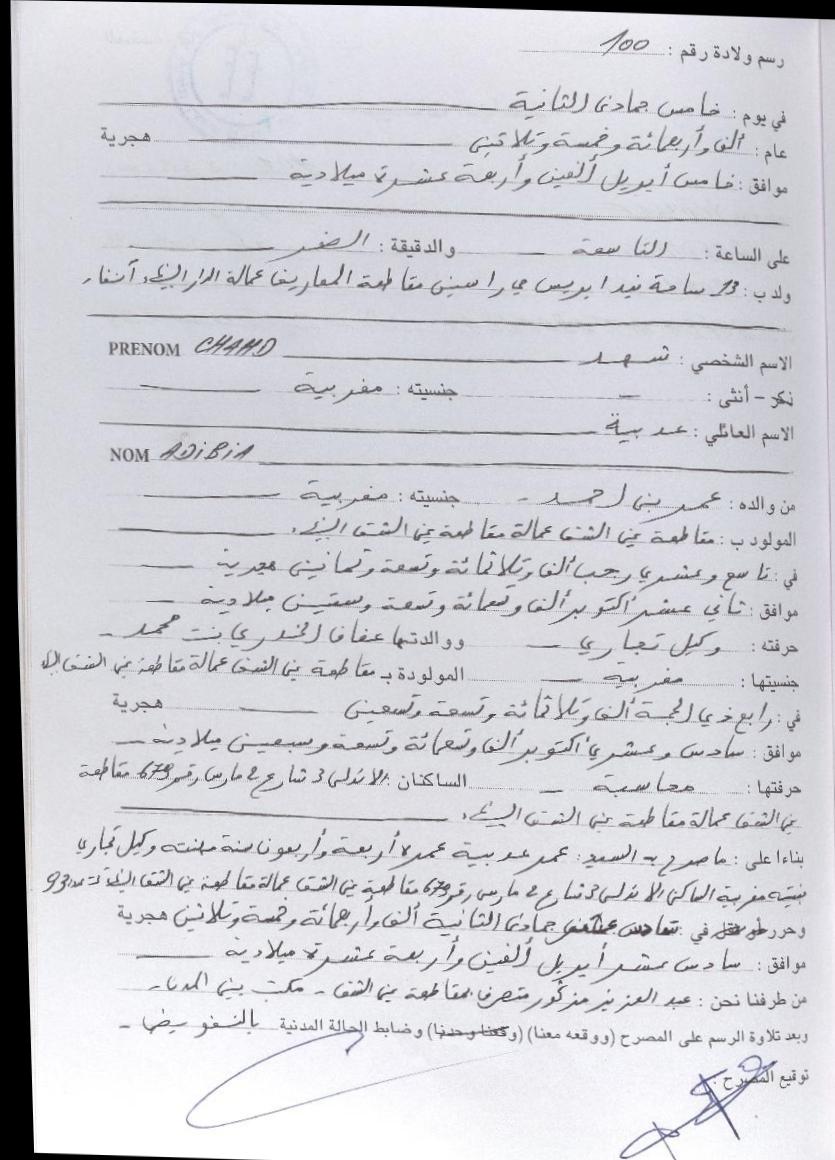 رسم ولادة رقم : 100
في يوم : خامس جمادى الثانية
عام : ألف وأربعمائة وخمسة وثلاثين هجرية
موافق : خامس أبريل ألفين وأربعة عشرة ميلادية
على الساعة : التاسعة والدقيقة : الصفر
ولد ب : 23 ساحة مقاطعة المعاريف عمالة الدار البيضاء آنفا
الاسم الشخصي : شهد PRENOM CHAHD
ذكر - أنثى : - جنسيته : مغربية
الاسم العائلي : عدبية
NOM ADIBIA
من والده : عمر بن احمد - جنسيته : مغربية
المولود ب : مقاطعة عين الشق عمالة مقاطعة عين الشق البيضاء
في : تاسع وعشري رجب ألف وثلاثمائة وتسعة وثمانين هجرية
موافق : ثاني عشر أكتوبر ألف وتسعمائة وتسعة وستين ميلادية
حرفته : وكيل تجاري ووالدتها عفاف الخدري بنت محمد -
جنسيتها : مغربية المولودة ب مقاطعة عين الشق عمالة مقاطعة عين الشق البيضاء
في : رابع ذي الحجة ألف وثلاثمائة وتسعة وتسعين هجرية
موافق : سادس وعشري أكتوبر ألف وتسعمائة وتسعة وسبعين ميلادية
حرفتها : محاسبة الساكنان : الاندلس 3 شارع 2 مارس رقم 679 مقاطعة
عين الشق عمالة مقاطعة عين الشق البيضاء
بناءا على : ما صرح به السيد : عمر عدبية عمره أربعة وأربعون سنة مهنته وكيل تجاري
جنسيته مغربية الساكن الاندلس 3 شارع 2 مارس رقم 679 مقاطعة عين الشق عمالة مقاطعة عين الشق البيضاء
وحرر في : سادس جمادى الثانية ألف وأربعمائة وخمسة وثلاثين هجرية
موافق : سادس عشر أبريل ألفين وأربعة عشرة ميلادية
من طرفنا نحن : عبد العزيز مذكور متصرف بمقاطعة عين الشق - مكتب بني
وبعد تلاوة الرسم على المصرح (ووقعه معنا) (وقعنا وحدنا) وضابط الحالة المدنية بالتفويض -
توقيع المصرح :